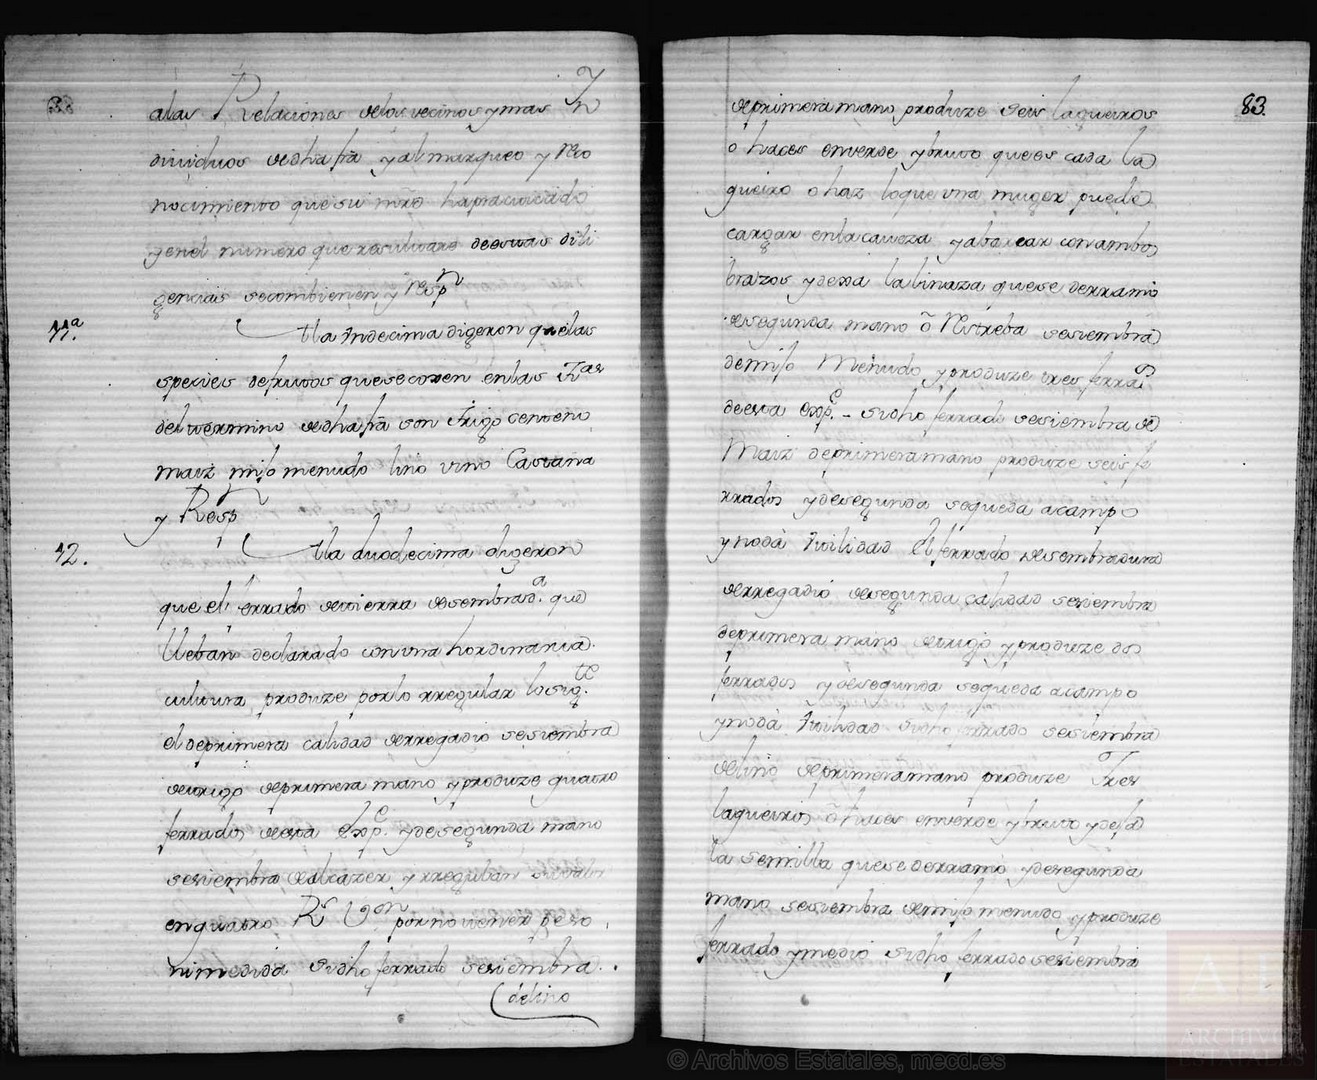 alas Relaciones delos vecinos y mas Yn
dividuos dedha frâ y al marqueo y reco
nocimiento que su mrd ha practicado
yenel numero que resultare de estas dili
gencias se combienen y resp.n
11.a
Ala Undecima digeron que las
species de frutos que se cojen en las Tras
del termino dedha frâ son Trigo Centeno
maiz mijo menudo lino vino Castaña
y Resp.n
12.
Ala duodecima digeron
que el ferrado de tierra de sembrad.a que
lleban declarado con una hordinaria
cultura, produze por lo rregular lo sig.te
el de primera calidad de rregadio se siembra
de trigo de primera mano y produze quatro
ferrados de esta esp.e y de segunda mano
se siembra de alcazer y rregulan su valor
en quatro Rs Von por no tener peso
ni medida Sudho ferrado se siembra
de lino
83
de primera mano, produze seis lagueiros
o haces en verde y bruto que es cada la
gueiro o haz lo que una muger puede
cargar en la caveza y abarcar con ambos
brazos y dexa la linaza que se derramo
de segunda mano ô Restreba se siembra
de mijo Menudo y produze tres ferra.s
de esta esp.e - Sudho ferrado se siembra de
Maiz de primera mano produze seis fe
rrados y de segunda se queda a campo
y no dâ Utilidad El ferrado de sembradura
de rregadio de segunda calidad se siembra
de primera mano de trigo y produze dos
ferrados y de segunda se queda a campo
y no dâ Utilidad Sudho ferrado se siembra
de lino de primera mano produze Tres
lagueiros ô haces en verde y bruto y deja
la semilla que se derramo y de segunda
mano se siembra de mijo menudo y produze
ferrado y medio Sudho ferrado se siembra
© Archivos Estatales, mecd.es
ARCHIVOS
ESTATALES